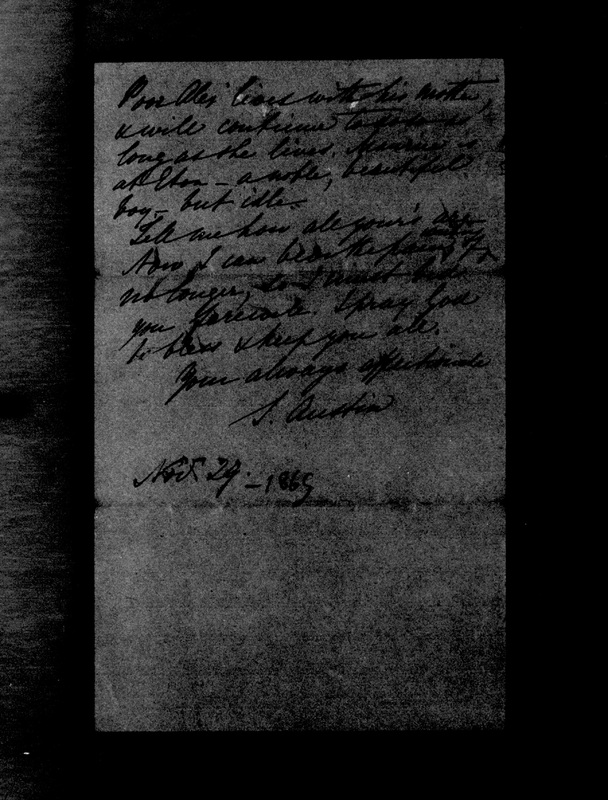 Poor Alex lives with his mother,
& will continue to do so as
long as she lives. Maurice is
at Eton – a noble, beautiful
boy – but idle.
Tell me how all yours are.
Now I can bear the of
no longer, so I must bid
you farewell. I pray God
to bless & keep you all.
Your always affectionate
S. Austin
Nov. 29. – 1865